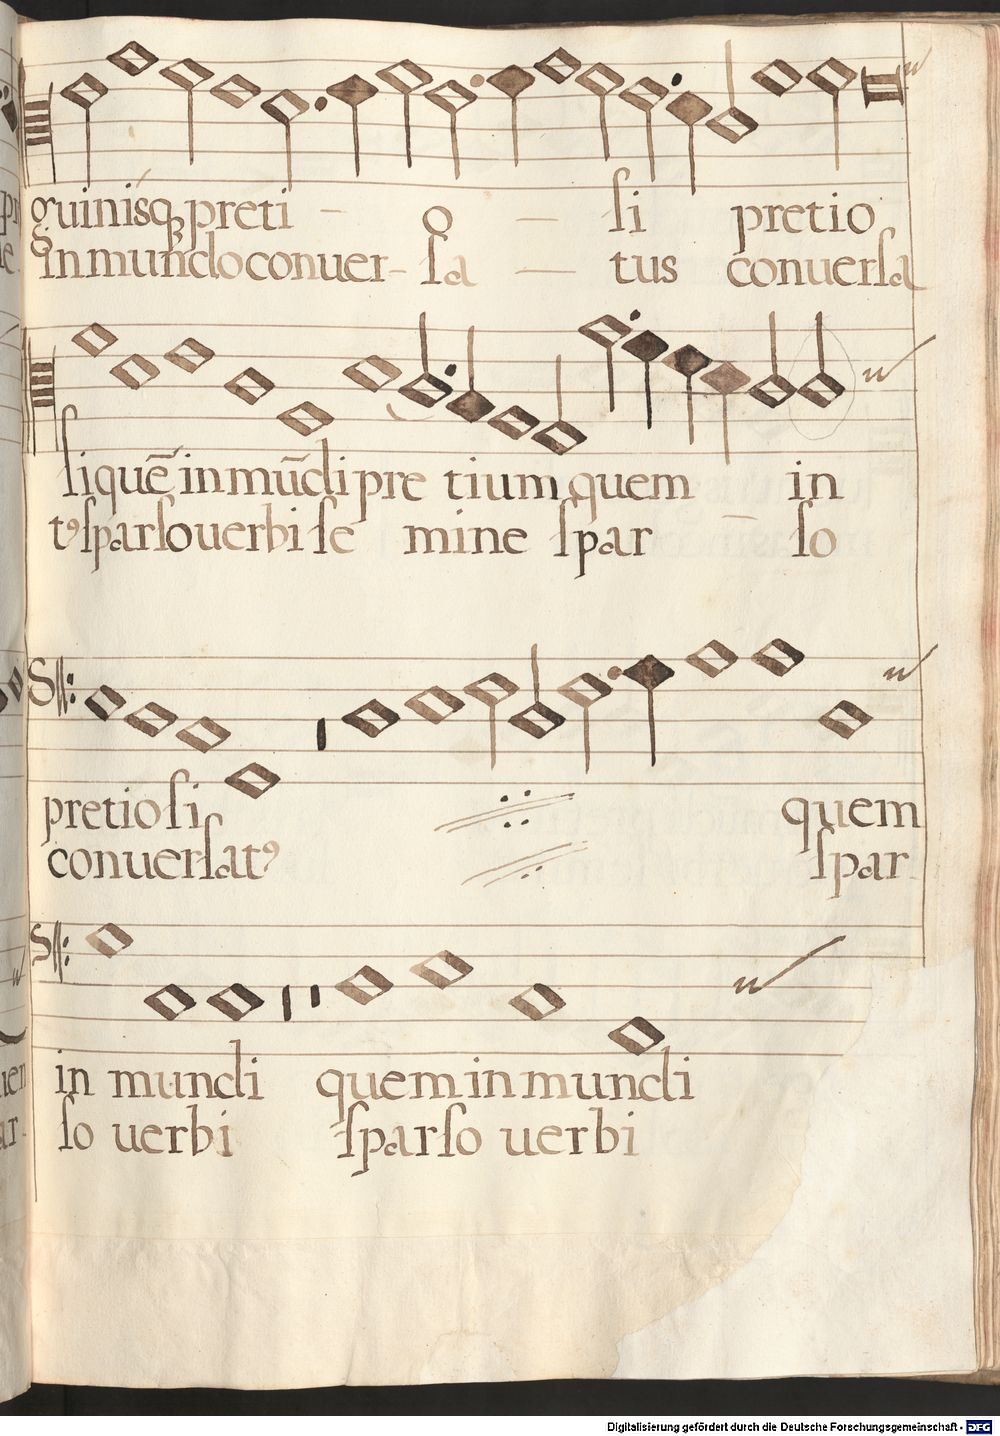 guinisq̃ preti - o - ſi pretio
in mundo conuer- ſa - tus conuerſa
ſi quē in mūdi pre tium quem in
tꝰ ſparſo uerbi ſe mine ſpar - ſo
pretioſi quem
conuerſatꝰ ſpar
in mundi quem in mundi
ſo uerbi ſparſo uerbi
Digitalisierung gefördert durch die Deutsche Forschungsgemeinschaft - DFG